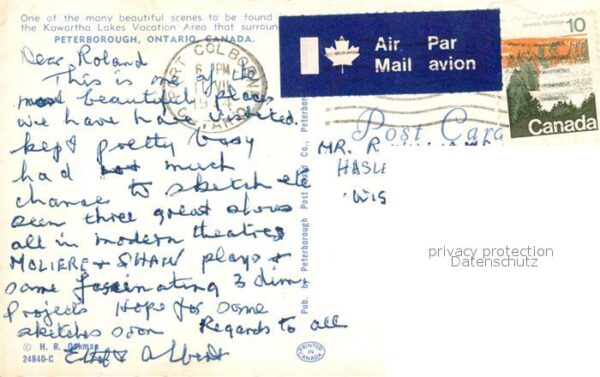 One of the many beautiful scenes to be found
the Kawartha Lakes Vacation Area that surroun
PETERBOROUGH, ONTARIO, CANADA.
Dear Roland
This is one of the
most beautiful places
we have have visited.
kept pretty busy
had not much
chance to sketch etc
seen three great shows
all in modern theatres
MOLIERE & SHAW plays &
some fascinating 3 dim.
projects Hope for some
sketches soon Regards to all
& Albert
© H. R. Oakman
24840-C
Pub. by Peterborough Post Card Co., Peterborough
PRINTED IN CANADA
PORT COLBORNE
ONTARIO
6 PM
Air Mail
Par avion
10
Canada
Post Card
MR. R
HASL
WIS
privacy protection
Datenschutz